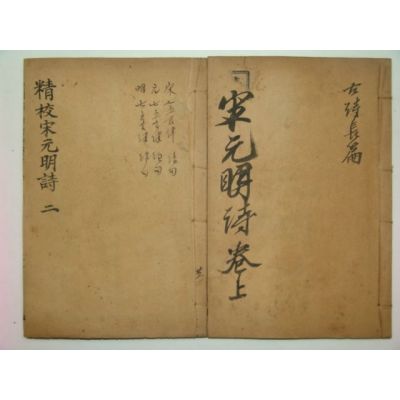 古詩長篇
宋元明詩卷上
宋七言律 絶句
元七言律 絶句
明七言律 絶句
精校宋元明詩 二